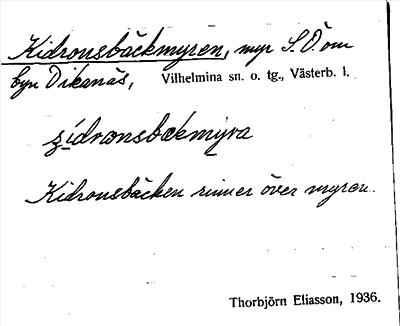 Kidronsbäckmyren, myr S.Ö. om
byn Dikanäs, Vilhelmina sn. o. tg., Västerb. l.
Kidronsbäcken rinner över myren.
Thorbjörn Eliasson, 1936.